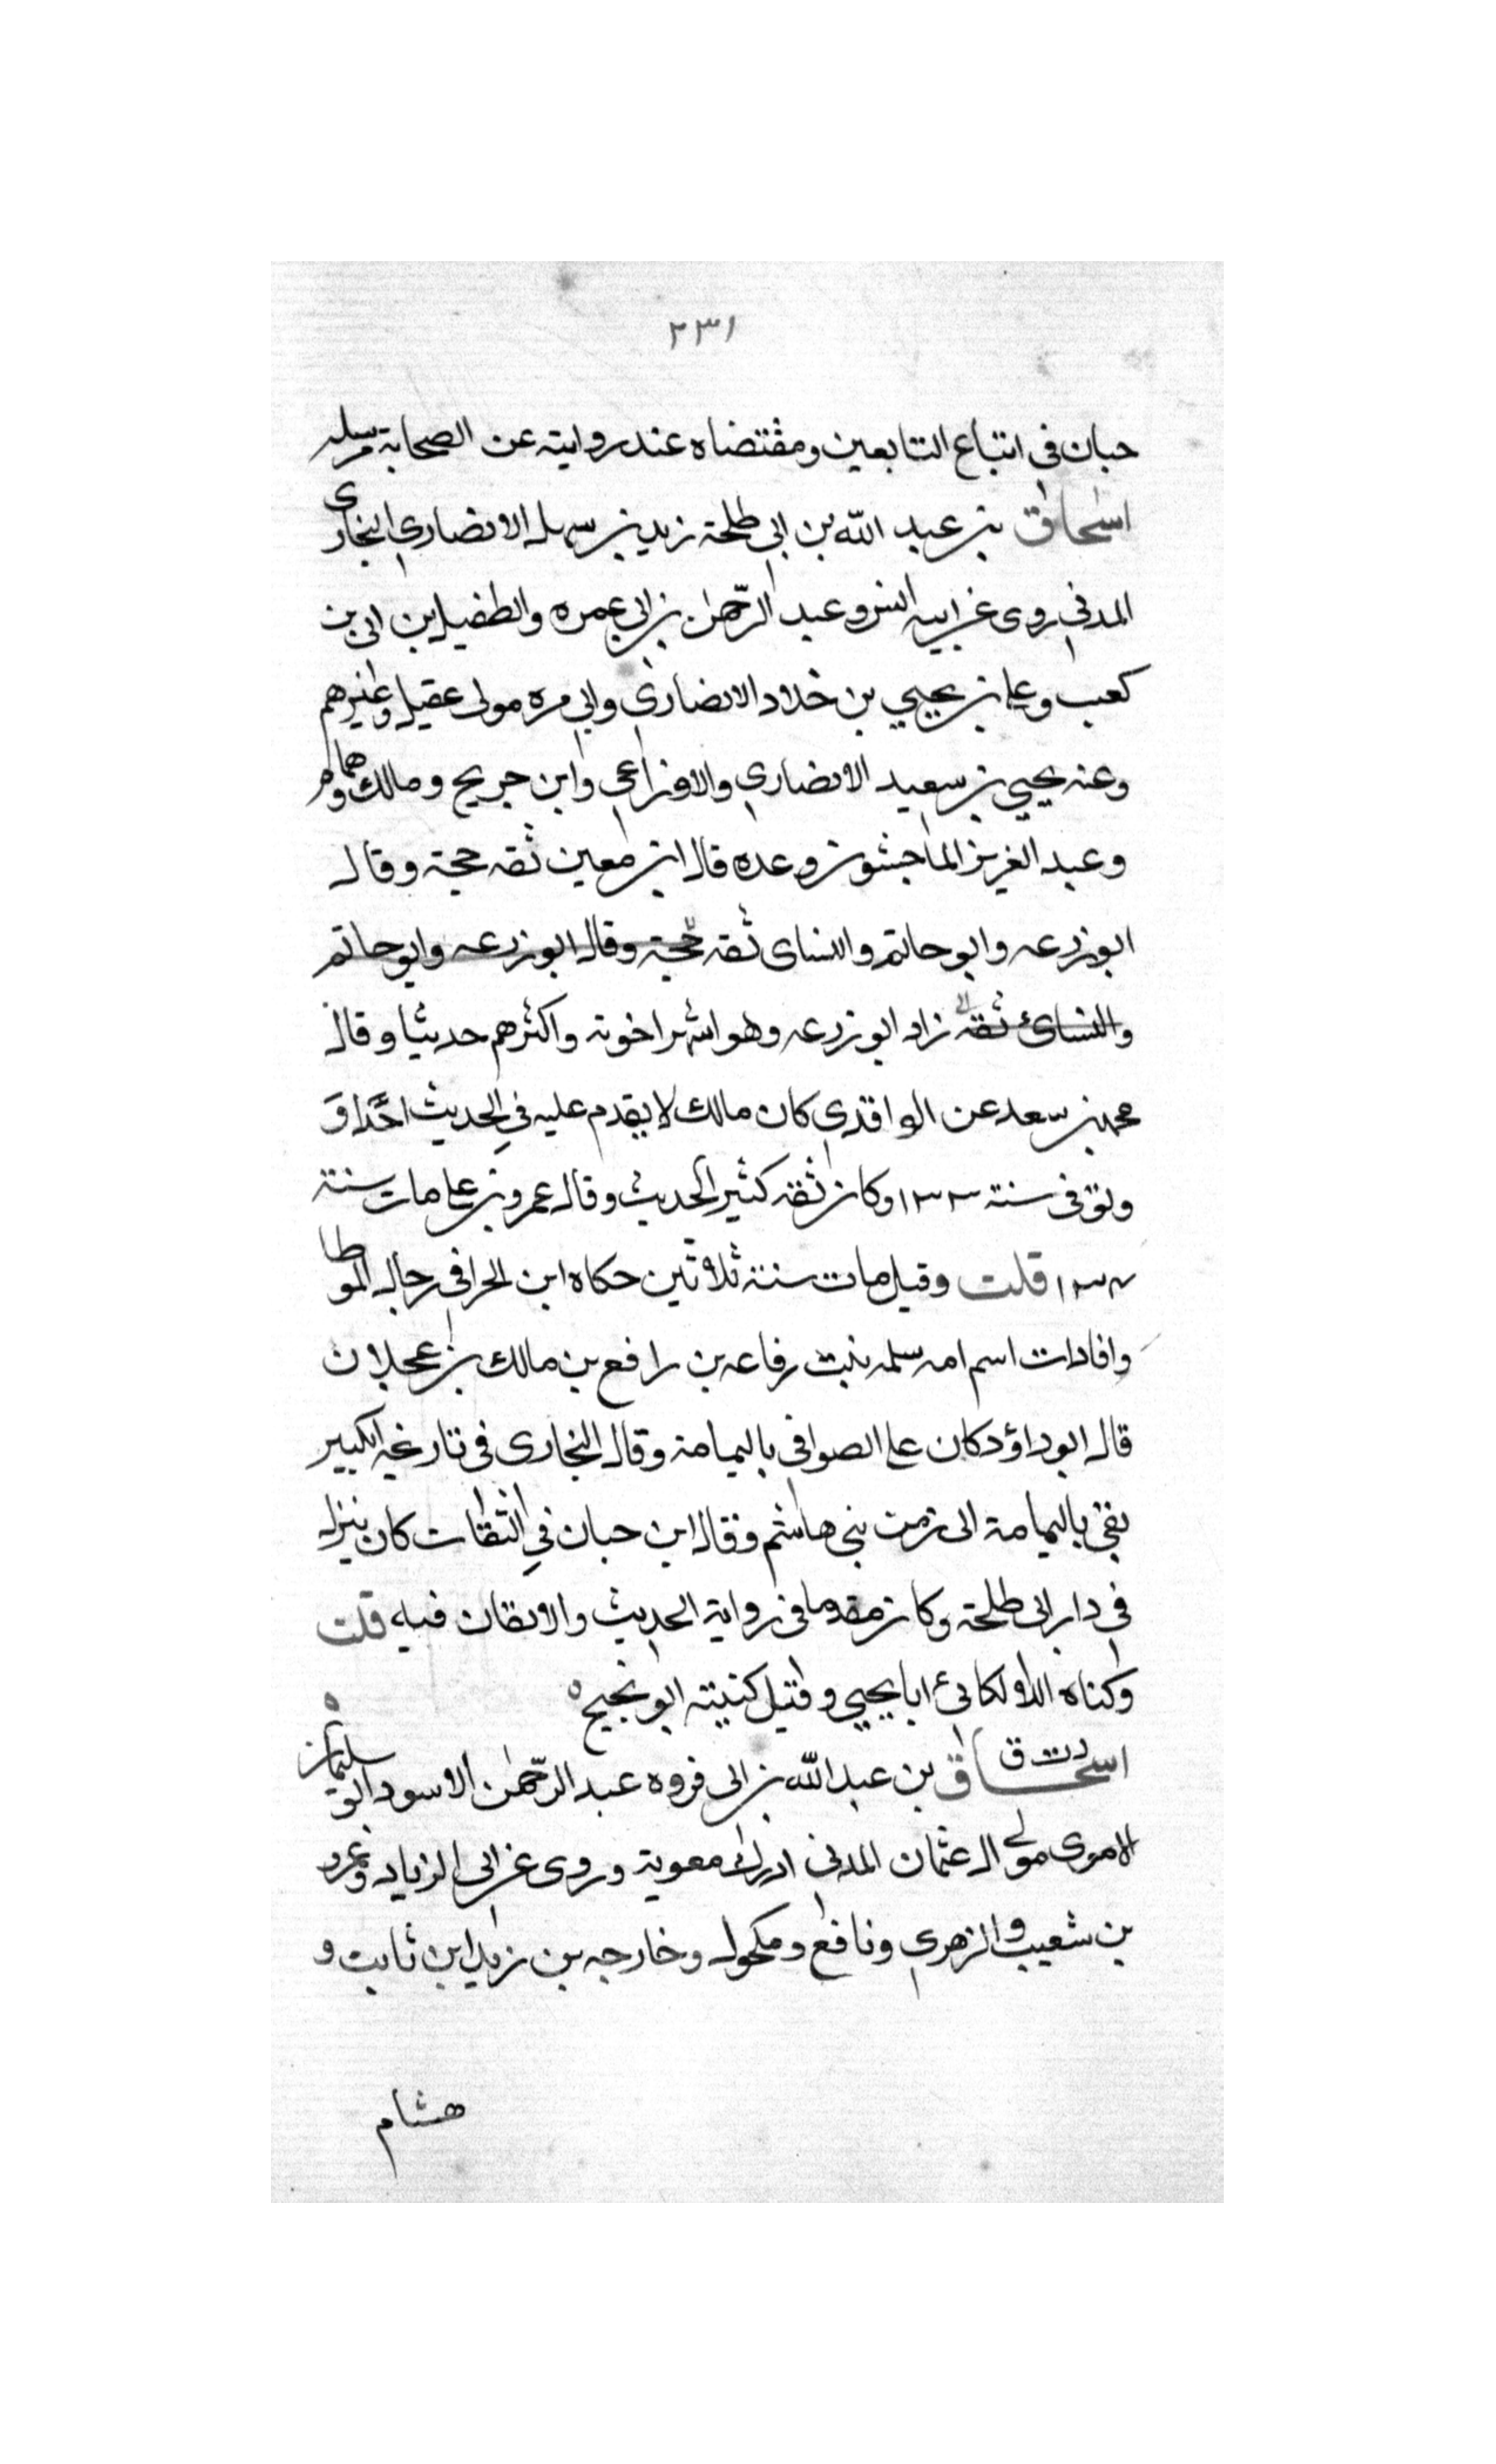 ٢٣١
حبان في اتباع التابعين ومقتضاه عنده روايته عن الصحابة مرسله
اسحاق بن عبد الله بن ابي طلحة زيد بن سهل الانصاري النجاري
المدني روى عن ابيه انس وعبد الرحمن بن ابي عمره والطفيل ابن ابي بن
كعب وعلي بن يحيي بن خلاد الانصاري وابي مره مولى عقيل وغيرهم
وعنه يحيي بن سعيد الانصاري والاوزاعي وابن جريج ومالك وهمام
وعبد العزيز الماجشون وعده قال ابن معين ثقه حجة وقال
ابو زرعه وابو حاتم والنساى ثقه حجة وقال ابو زرعه وابو حاتم
والنسائ ثقه زاد ابو زرعه وهو اشهر اخوته واكثرهم حديثا وقال
محمد بن سعد عن الواقدي كان مالك لا يقدم عليه في الحديث احدا و
وتوفى سنة ١٣٣ وكان ثقه كثير الحديث وقال عمرو بن علي مات سنة
١٣٤ قلت وقيل مات سنة ثلاثين حكاه ابن الحرا في رجال الموطا
وافادات اسم امه سلمه بنت رفاعه بن رافع بن مالك بن عجلان
قال ابو داؤد كان على الصوافى باليمامة وقال البخارى فى تاريخه الكبير
بقي باليمامة الى زمن بنى هاشم وقال ابن حبان في الثقات كان ينزل
في دار ابى طلحة وكان مقدما فى رواية الحديث والاتقان فيه قلت
وكناه اللالكائئ ابا يحيي وقيل كنيته ابو نجيح ه
د ت ق
اسحاق بن عبد الله بن ابى فروه عبد الرحمن الاسود ابو سليمان
الاموى مولى ال عثمان المدني ادرك معوية وروى عن ابى الزناد وعمرو
بن شعيب والزهري ونافع ومكحول وخارجه بن زيد ابن ثابت و
هشام